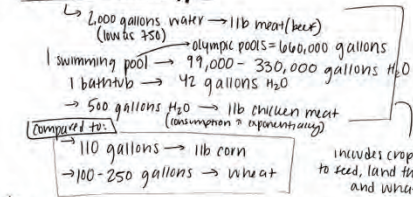 ↳ 2,000 gallons water → 1lb meat (beef)
(low as 750)
→ olympic pools = 660,000 gallons
1 swimming pool → 99,000 - 330,000 gallons H₂O
1 bathtub → 42 gallons H₂O
→ 500 gallons H₂O → 1lb chicken meat
(consumption ↑ exponentially)
compared to:
→ 110 gallons → 1lb corn
→ 100-250 gallons → wheat
includes crop
to feed, land
and